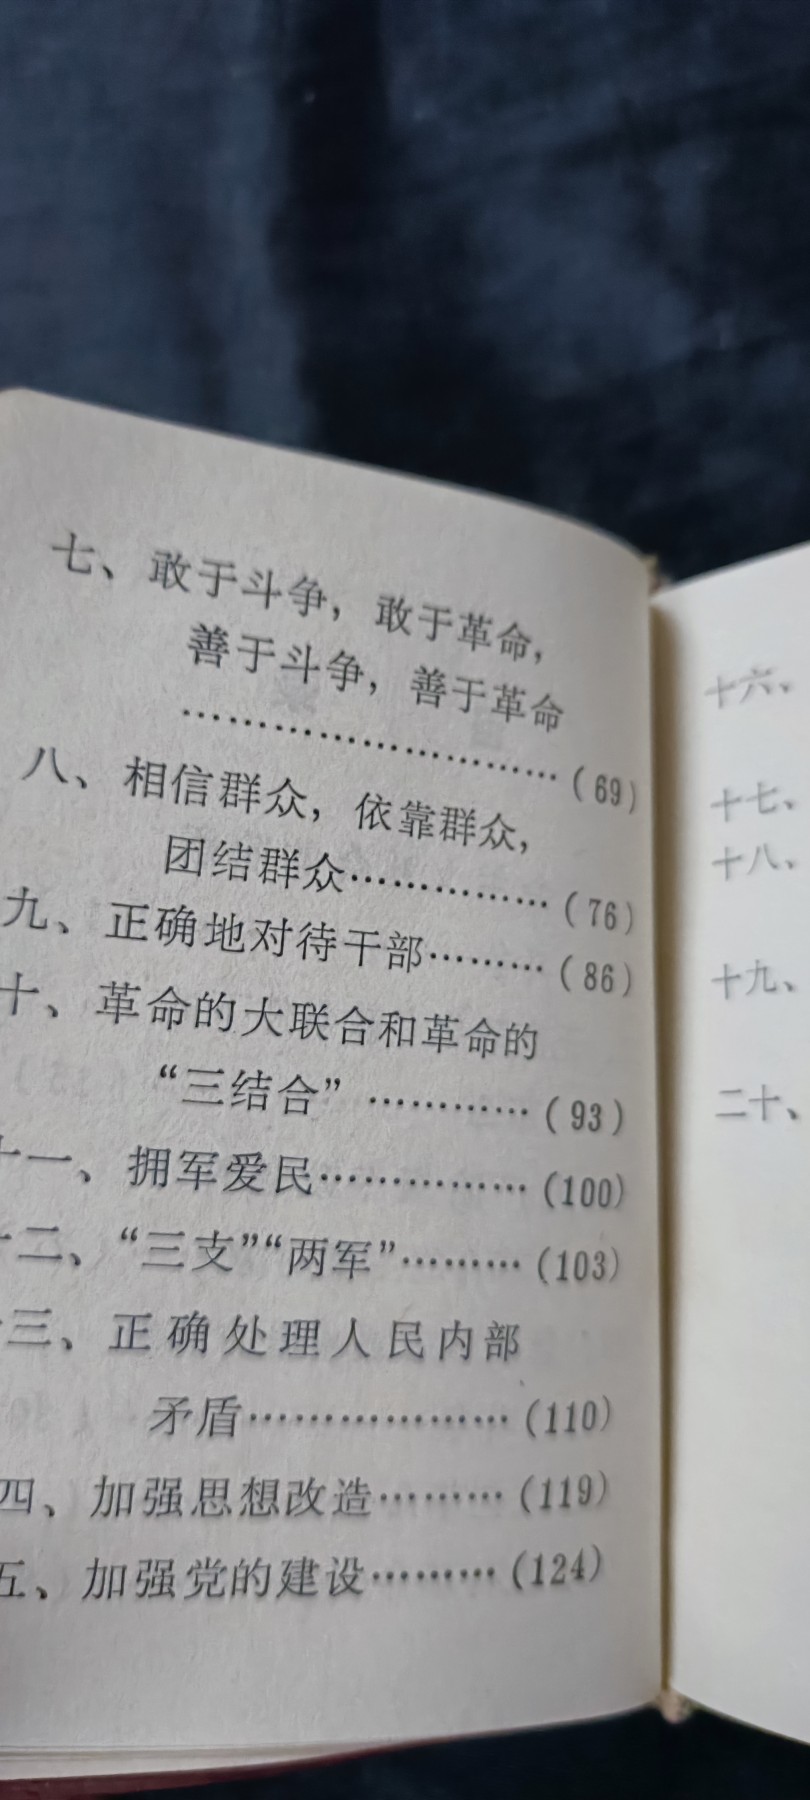 七、敢于斗争，敢于革命，
善于斗争，善于革命
…………………………(69)
八、相信群众，依靠群众，
团结群众………………(76)
九、正确地对待干部………(86)
十、革命的大联合和革命的
“三结合”…………(93)
十一、拥军爱民………………(100)
十二、“三支”“两军”………(103)
十三、正确处理人民内部
矛盾…………………(110)
四、加强思想改造………(119)
五、加强党的建设………(124)
十六、
十七、
十八、
十九、
二十、